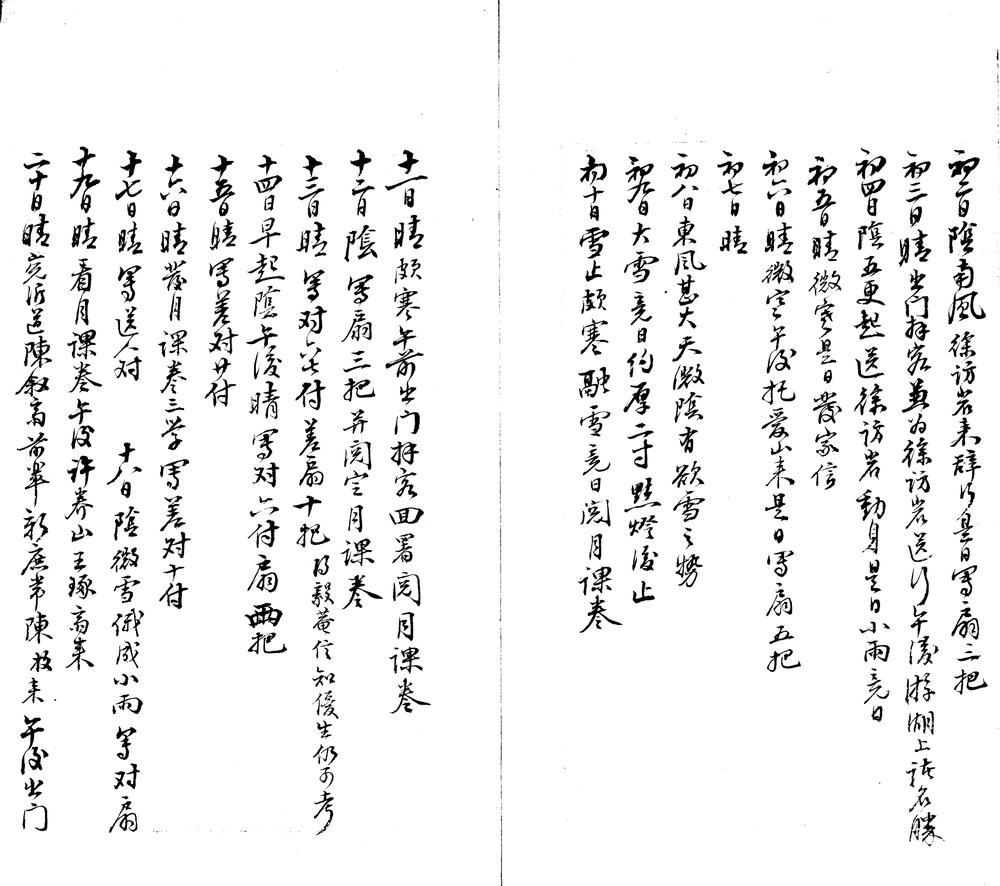 初二日陰南風徐訪岩来辞行是日写扇三把
初三日晴出门拜客兼为徐訪岩送行午後游湖上諸名勝
初四日陰五更起送徐訪岩動身是日小雨竟日
初五日晴微寒是日發家信
初六日晴微寒午後托爱山来是日写扇五把
初七日晴
初八日東風甚大天微陰有欲雪之勢
初九日大雪竟日约厚二寸點燈後止
初十日雪止頗寒融雪竟日閲月課卷
十一日晴頗寒午前出门拜客回署閲月課卷
十二日陰写扇三把并閲定月課卷
十三日晴写对付差扇十把得毅菴信知優生仍可考
十四日早起陰午後晴写对六付扇兩把
十五日晴写差对廿付
十六日晴發月課卷三学写差对十付
十七日晴写送人对 十八日陰微雪俄成小雨写对扇
十九日晴看月課卷午後許养山王琢斋来
二十日晴沂道陳叙斋前輩新庶常陳枚来午後出门